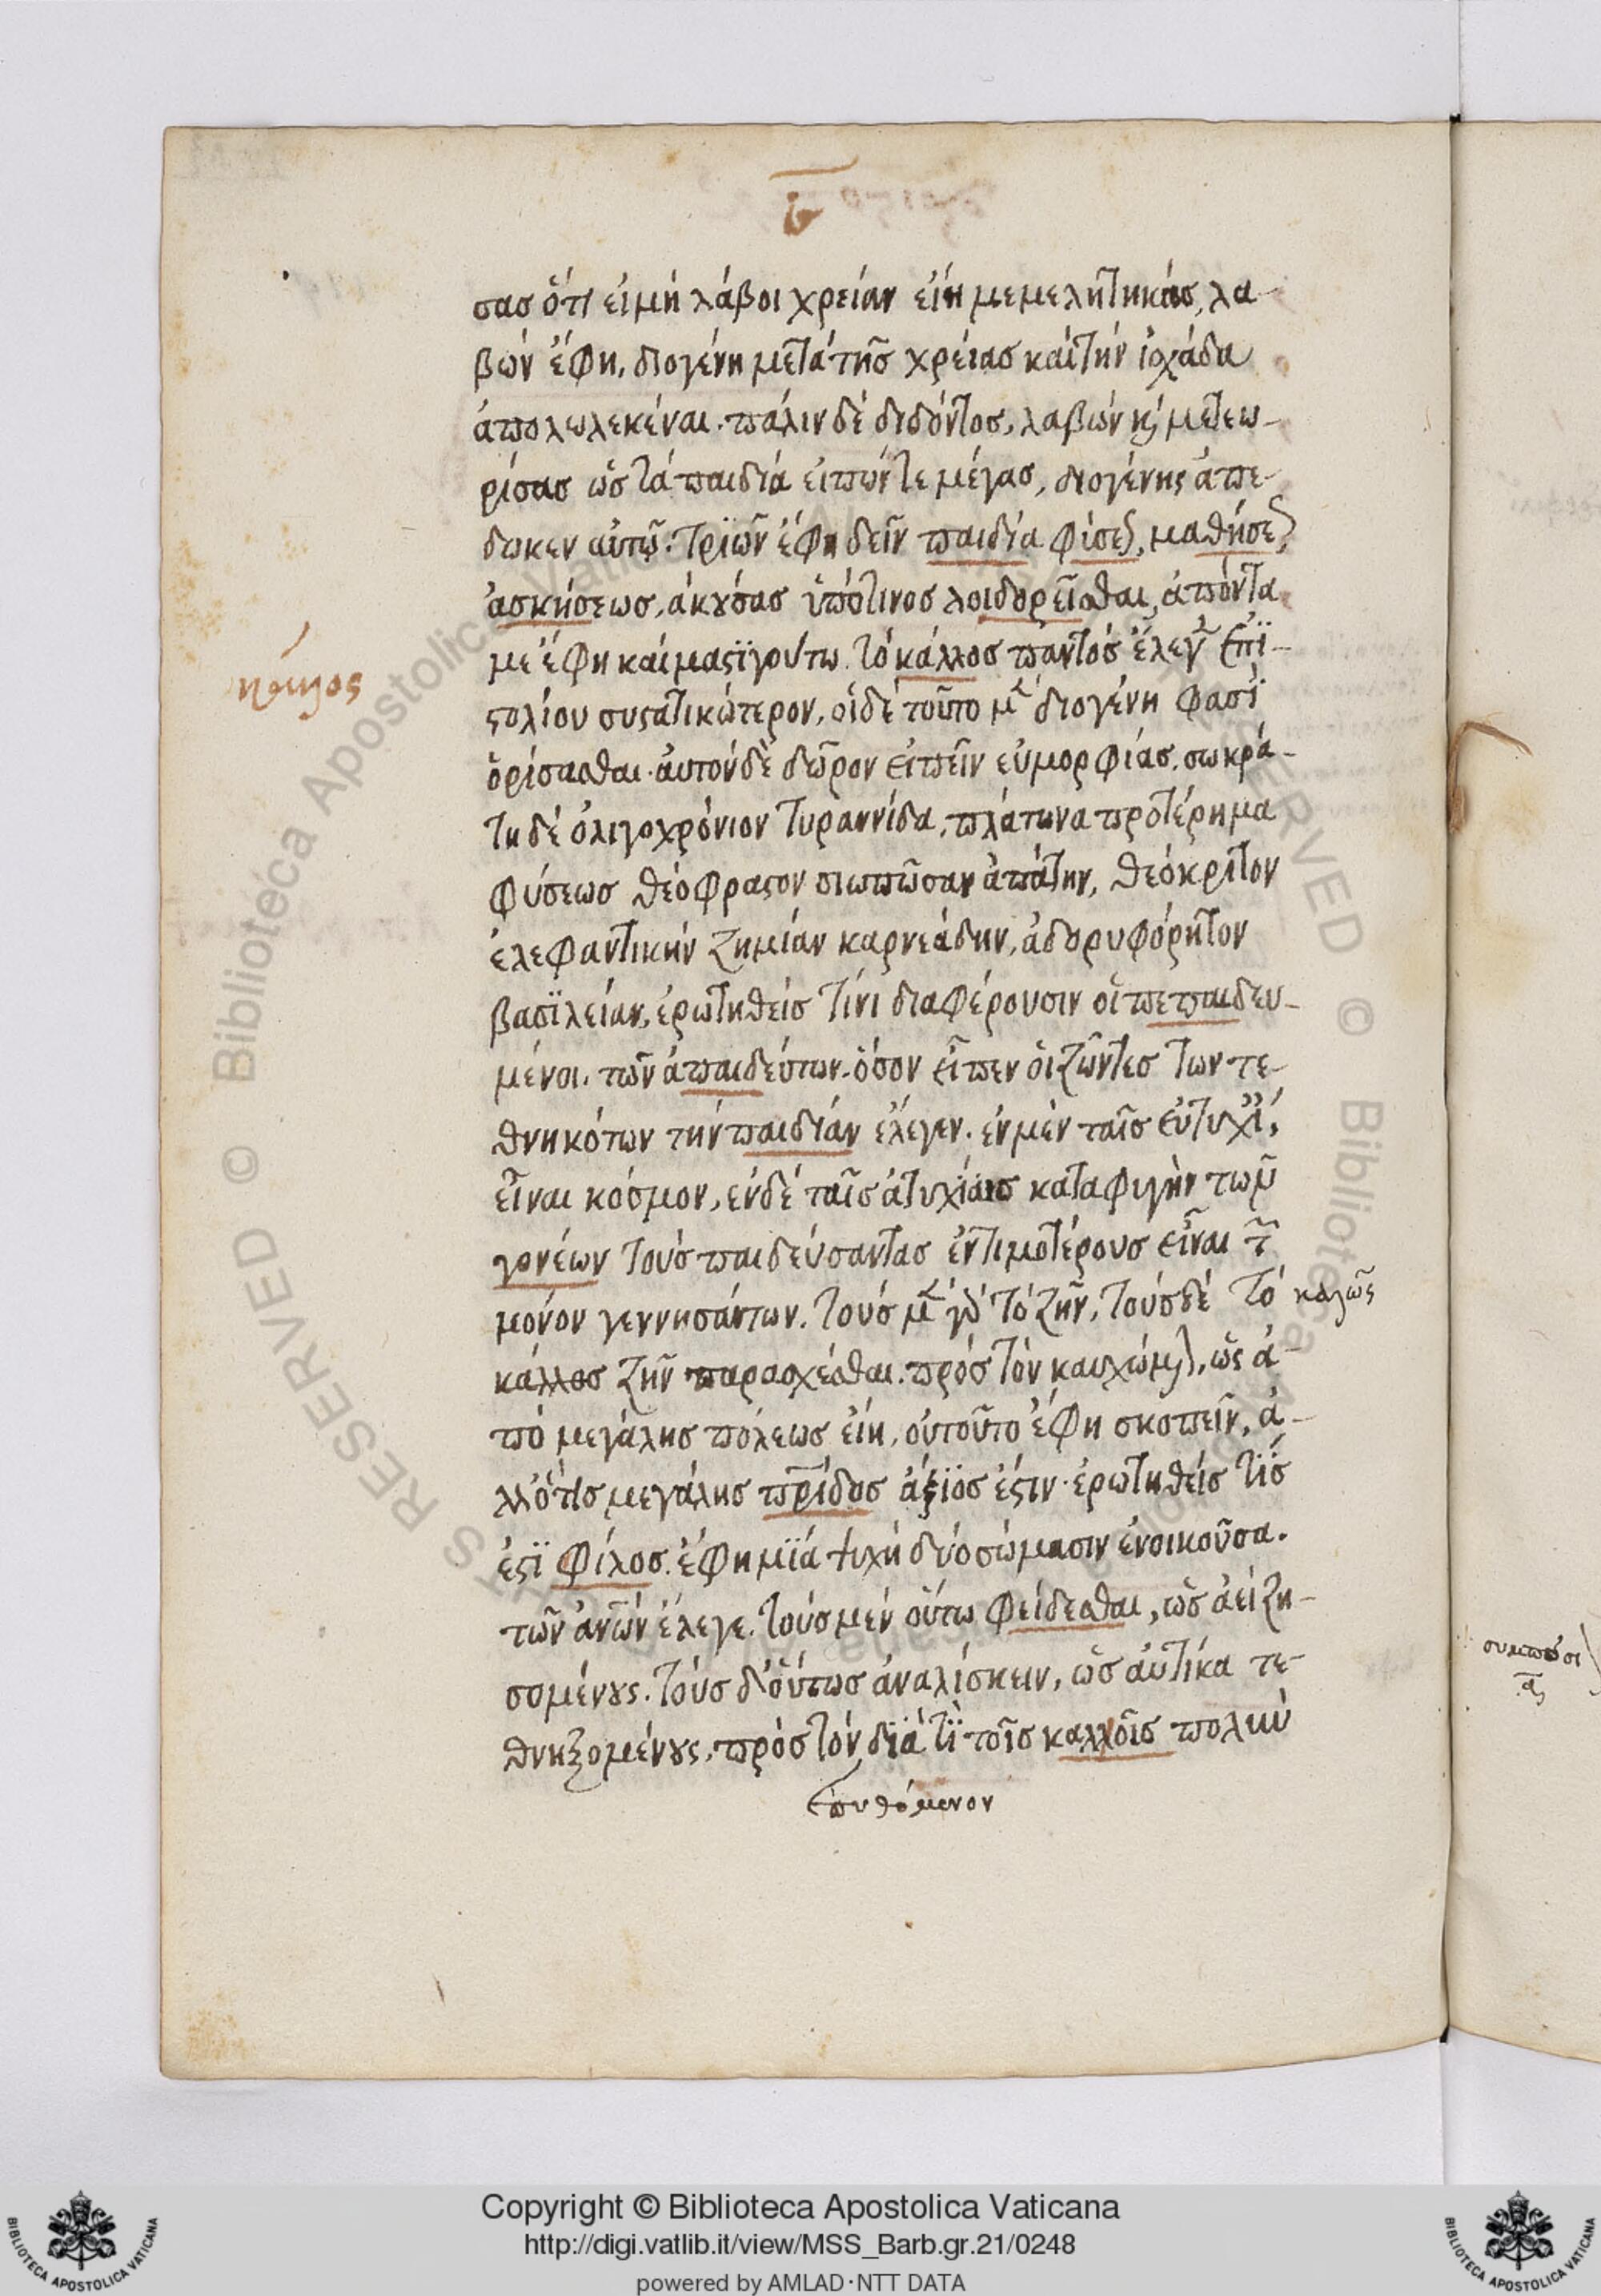 σασ ὅτι εἰ μὴ λάβοι χρείαν εἴη μεμελητηκὼσ, λα-
βών ἔφη, διογένη μετὰ τῆσ χρείασ καὶ τὴν ἰσχάδα
ἀπολωλεκέναι. πάλιν δὲ διδόντοσ, λαβών κ μετεω-
ρίσασ ὡσ τὰ παιδία εἰπών τε μέγασ, διογένης ἀπέ-
δωκεν αὐτῷ. τριῶν ἔφη δεῖν παιδία φύσε, μαθήσε,
ἀσκήσεωσ, ἀκούσασ ὑπό τινοσ λοιδορεῖσθαι, ἀπόντα
με ἔφη καὶ μαστιγούτω. τὸ κάλλοσ παντὸσ ἔλεγ ἐπι-
στολίου συστατικώτερον, οἱ δὲ τοῦτο μ διογένη φασὶ
ὁρίσασθαι. αὐτὸν δὲ δῶρον εἰπεῖν εὐμορφίασ. σωκρά-
τη δὲ ὀλιγοχρόνιον τυραννίδα, πλάτωνα προτέρημα
φύσεωσ θεόφραστον σιωπῶσαν ἀπάτην, θεόκριτον
ἐλεφαντικήν ζημίαν καρνεάδην, ἀδορυφόρητον
βασιλείαν, ἐρωτηθείσ τίνι διαφέρουσιν οἱ πεπαιδευ-
μένοι. τῶν ἀπαιδεύτων. ὅσον εἶπεν οἱ ζῶντεσ των τε-
θνηκότων τὴν παιδιάν ἔλεγεν. ἐν μὲν ταῖσ εὐτυχί,
εἶναι κόσμον, ἐν δὲ ταῖσ ἀτυχίαισ καταφιγὴν τῶν
γονέων τοὺσ παιδεύσαντασ ἐντιμοτέρουσ εἶναι τ
μόνον γεννησάντων. τοὺσ μ γ τὸ ζῆν, τοὺσ δὲ τὸ καλῶς
κάλλοσ ζῆν παρασχέσθαι. πρόσ τὸν καυχώμ, ὡς ἀ-
πὸ μεγάλησ πόλεωσ εἴη, οὐ τοῦτο ἔφη σκοπεῖν, ἀ-
λλ' ὅστισ μεγάλησ πρίδοσ ἄξιόσ ἐστιν. ἐρωτηθείσ τί
ἐστι φίλοσ. ἔφη μία ψυχή δύο σώμασιν ἐνοικοῦσα.
τῶν ἀνῶν ἔλεγε. τοὺσ μὲν οὕτω φείδεσθαι, ὡσ ἀεὶ ζη-
σομένους. τοὺσ δ' οὕτωσ ἀναλίσκειν, ὡσ αὐτίκα τε-
θνηξομένους, πρὸσ τὸν διὰ τί τοῖσ καλλοῖσ πολυν
πυθόμενον
κάλλος
συμποσι
Copyright © Biblioteca Apostolica Vaticana
http://digi.vatlib.it/view/MSS_Barb.gr.21/0248
powered by AMLAD·NTT DATA